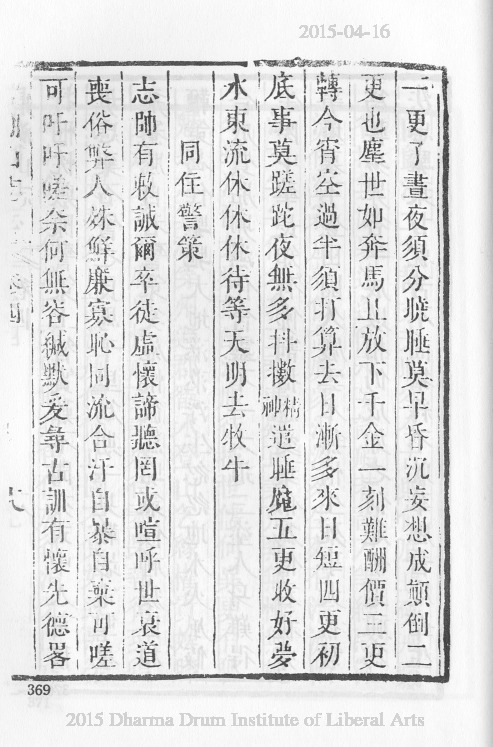 2015-04-16
一更了晝夜須分曉睡莫早昏沉妄想成顛倒二
更也塵世如奔馬且放下千金一刻難酬價三更
轉今宵空過半須打算去日漸多來日短四更初
底事莫蹉跎夜無多抖擻精神遣睡魔五更收好夢
水東流休休休待等天明去牧牛
同住警策
志師有敕誡爾卒徒虛懷諦聽罔或喧呼世衰道
喪俗弊人殊鮮廉寡恥同流合汙自暴自棄可嗟
可吁吁嗟奈何無容緘默爰尋古訓有懷先德畧
卷四
369
2015 Dharma Drum Institute of Liberal Arts